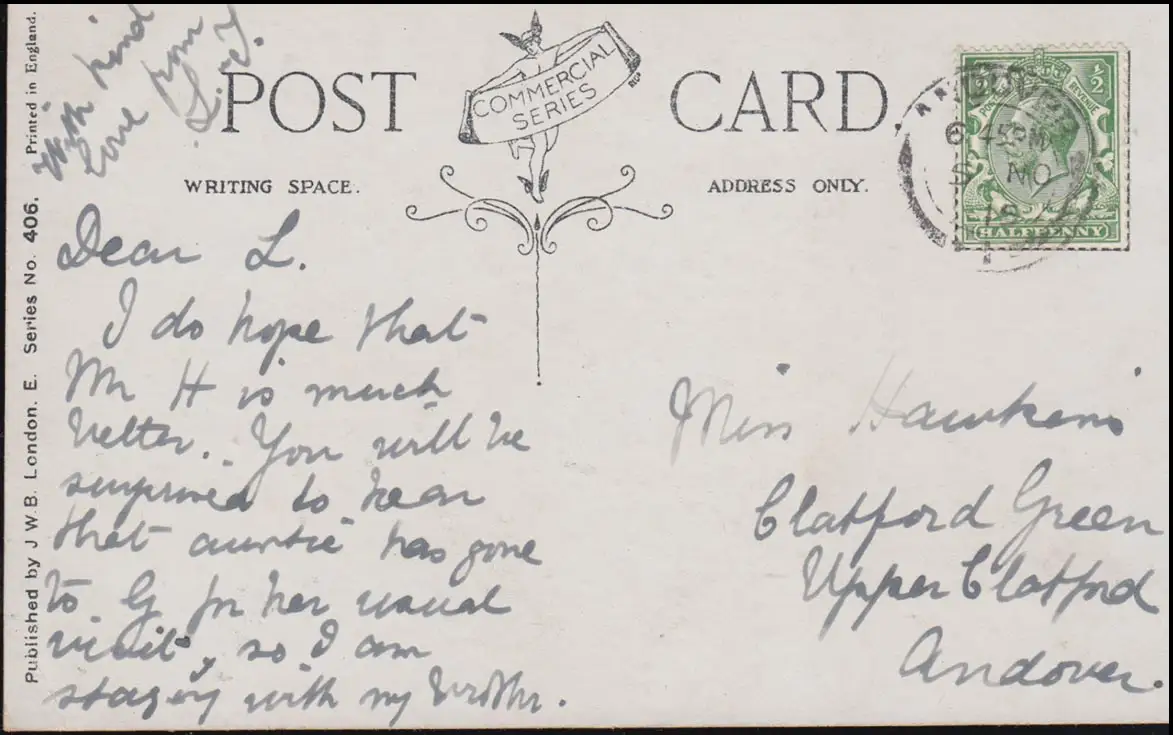 With kind
love from
POST CARD
COMMERCIAL
SERIES
WRITING SPACE.
ADDRESS ONLY.
Printed in England.
Published by J.W.B. London. E. Series No. 406.
Dear L.
I do hope that
Mr H is much
better. You will be
surprised to hear
that auntie has gone
to G for her usual
visit, so I am
stayg with my brother.
Miss Hawkins
Clatford Green
Upper Clatford
Andover.
½ ½
REVENUE
HALFPENNY
6 45PM
MO